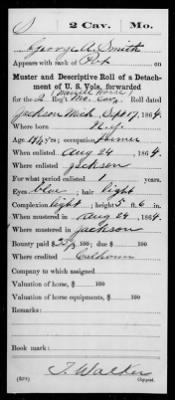 S 2 Cav. Mo.
George A. Smith
Appears with rank of Pvt on
Muster and Descriptive Roll of a Detach-
ment of U. S. Vols. forwarded
(Merrill Horse)
for the 2 Reg't Mo. Cav. Roll dated
Jackson Mich Sept 17, 1864.
Where born N.Y.
Age y'rs; occupation Farmer
When enlisted Aug 24, 1864.
Where enlisted Jackson
For what period enlisted 1 years.
Eyes blue; hair light
Complexion light; height 5 ft. 6 in.
When mustered in Aug 24, 1864.
Where mustered in Jackson
Bounty paid $ /100; due $ /100
Where credited Calhoun
Company to which assigned
Valuation of horse, $ /100
Valuation of horse equipments, $ /100
Remarks:
Book mark:
Walker
Copyist.